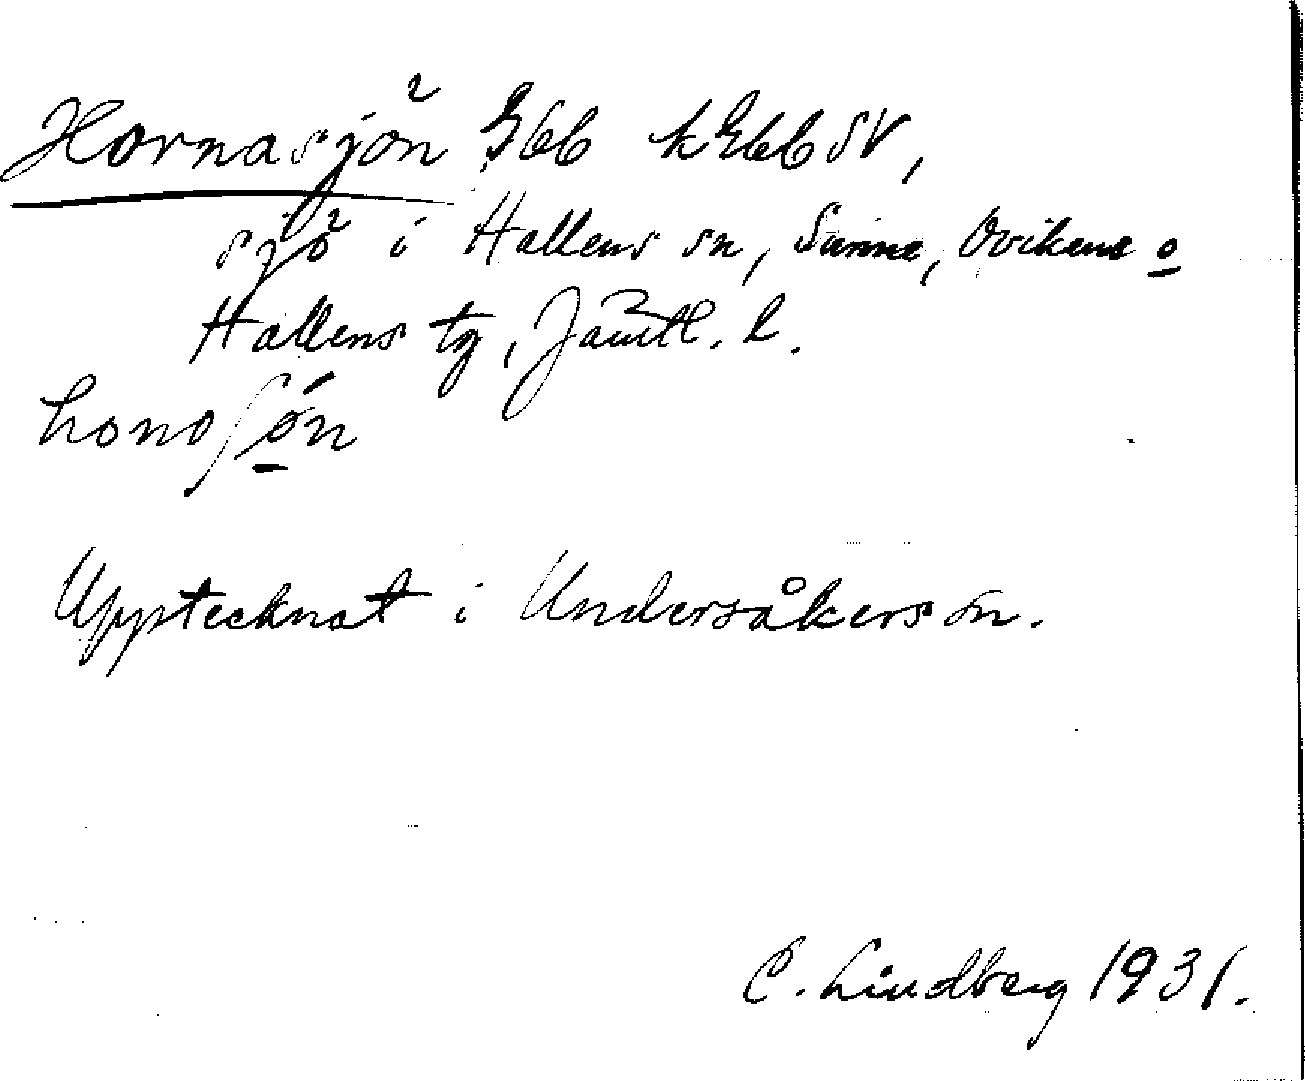 Hornasjön Gbb kGbbSV,
sjö i Hallens sn, Sunne, Ovikens o
Hallens tg, Jämtl. l.
honoʃǿn
Upptecknat i Undersåkers sn.
C. Lindberg 1931.